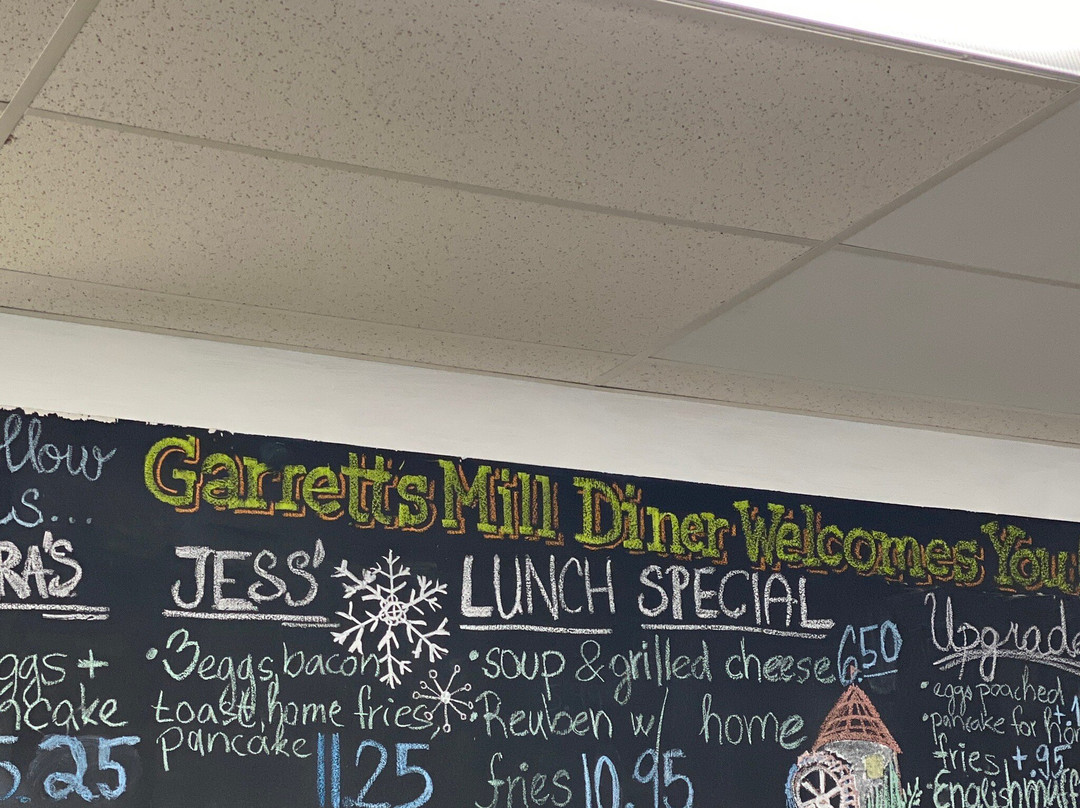 Garrett's Mill Diner Welcomes You
llow
s...
RA'S
ggs +
cake
5.25
JESS'
• 3 eggs, bacon
toast, home fries,
pancake 11.25
LUNCH SPECIAL
• soup & grilled cheese 6.50
• Reuben w/ home
fries 10.95
Upgrade
• eggs poached +1
• pancake for hom
fries +.95
• English muff